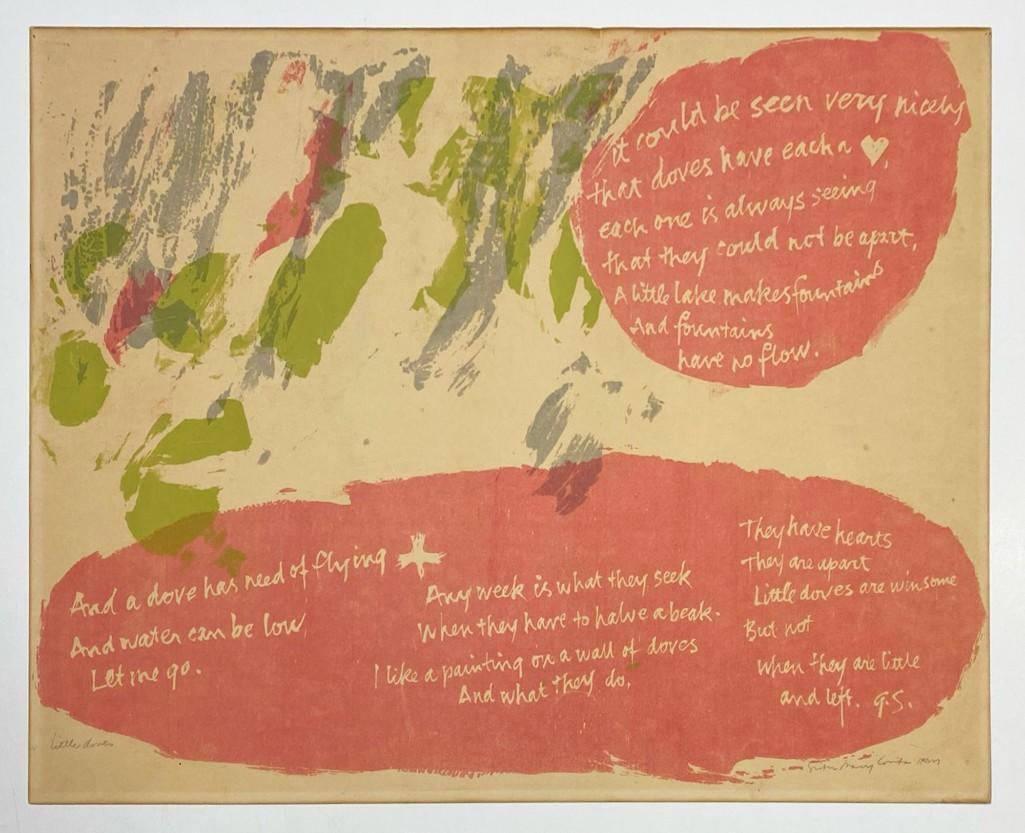 it could be seen very nicely
that doves have each a ♥,
each one is always seeing
that they could not be apart,
A little lake makes fountains
And fountains
have no flow.
And a dove has need of flying
And water can be low,
Let me go.
Any week is what they seek
When they have to halve a beak.
I like a painting on a wall of doves
And what they do.
They have hearts
They are apart
Little doves are winsome
But not
when they are little
and left. g.S.
little doves
Sister Mary Corita IHM